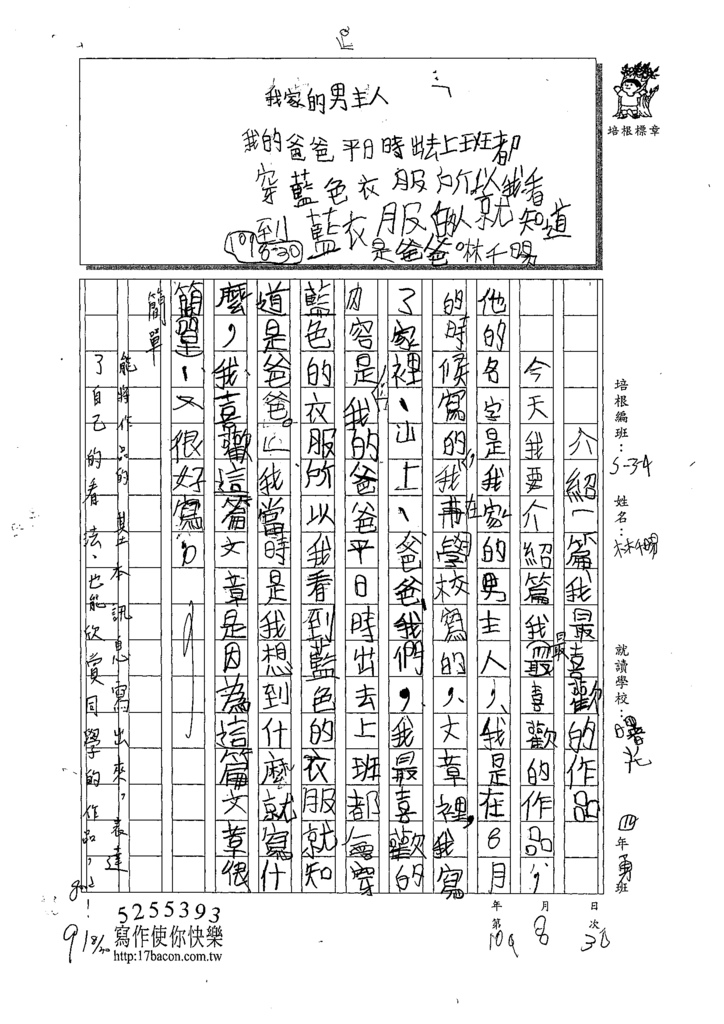 我家的男主人
我的爸爸平日時出去上班都
穿藍色衣服所以我看
到藍衣服的人就知道
是爸爸。林千暘
109 8-30
培根標章
培根編班：S-34 姓名：林千暘 就讀學校：曙光 四年勇班
介紹一篇我最喜歡的作品
今天我要介紹篇我最喜歡的作品，
他的名字是我家的男主人，我是在8月
的時候寫的，我再學校寫的，文章裡，我寫
了家裡、山上、爸爸，我們，我最喜歡的
內容是我的爸爸平日時出去上班都會穿
藍色的衣服所以我看到藍色的衣服就知
道是爸爸。我當時是我想到什麼就寫什
麼，我喜歡這篇文章是因為這篇文章很
簡單，又很好寫。
簡單
能將作品的基本訊息寫出來，表達
了自己的看法，也能欣賞同學的作品，
日 次 30
月 8
年 第 109
91 8/30
5255393
寫作使你快樂
http:17bacon.com.tw